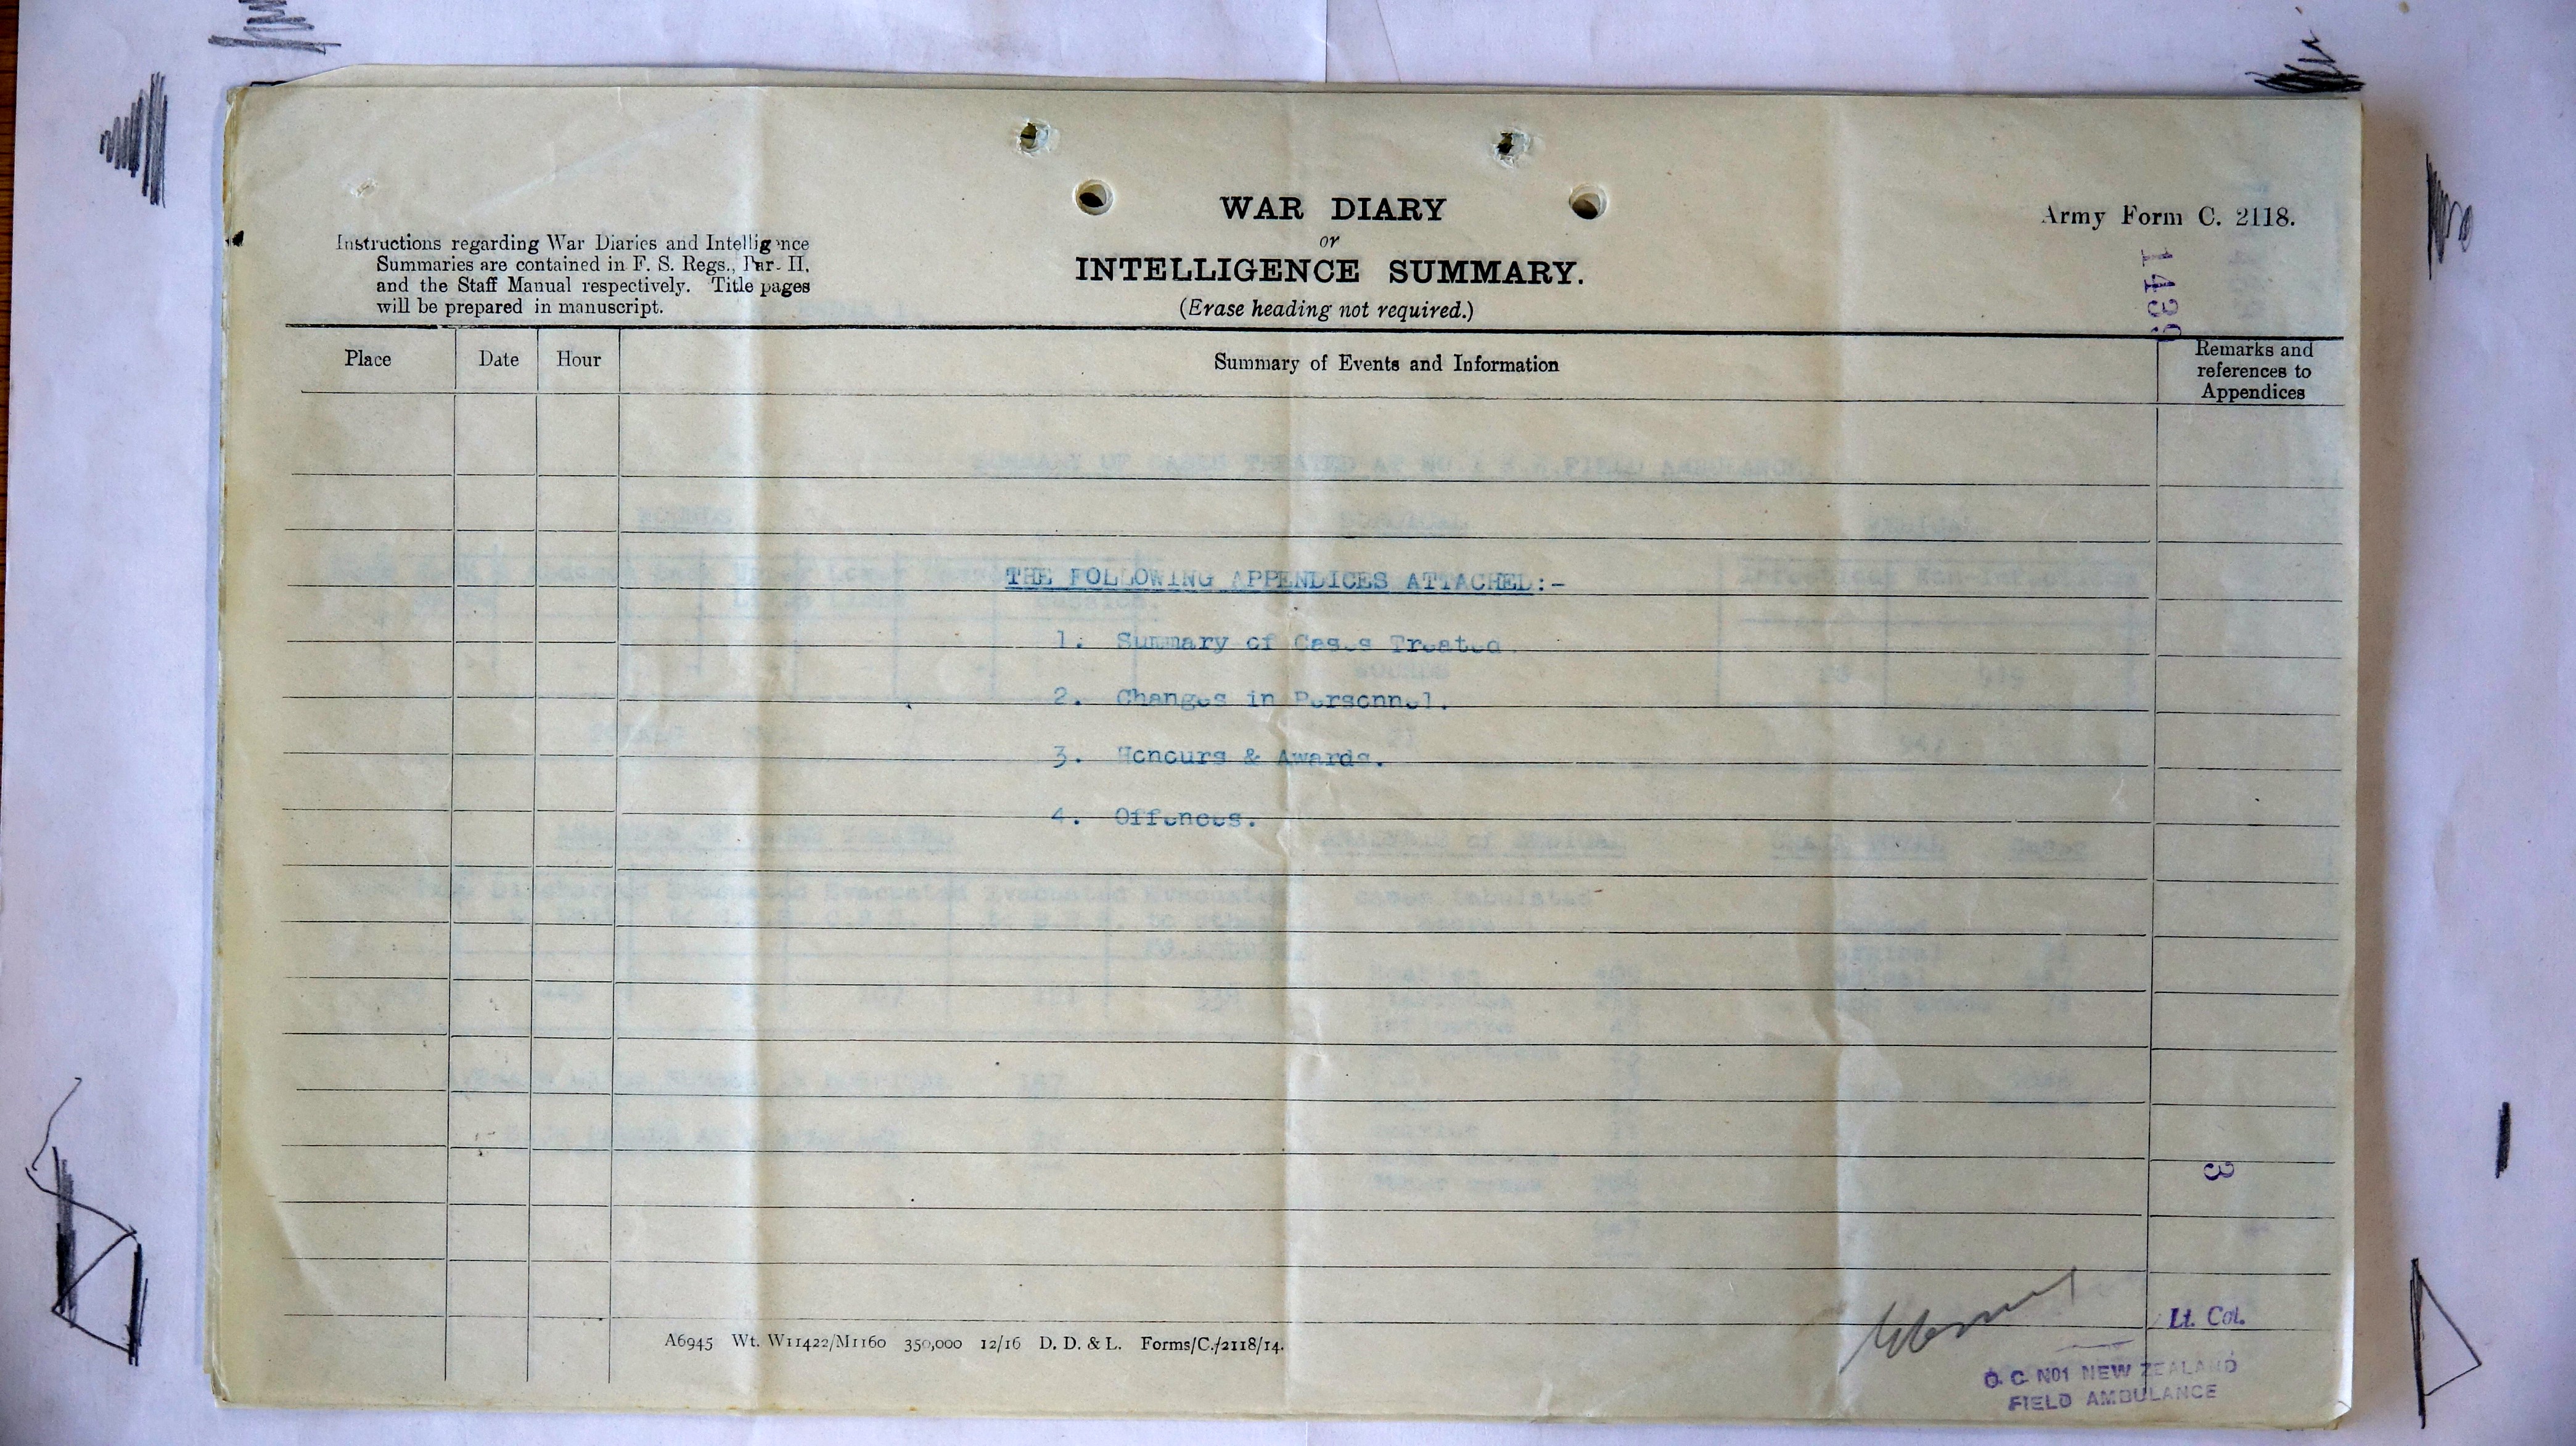 WAR DIARY
or
INTELLIGENCE SUMMARY.
(Erase heading not required.)
Army Form C. 2118.
1439
Instructions regarding War Diaries and Intelligence
Summaries are contained in F. S. Regs., Par. II.
and the Staff Manual respectively. Title pages
will be prepared in manuscript.
Place Date Hour Summary of Events and Information Remarks and
references to
Appendices
THE FOLLOWING APPENDICES ATTACHED:-
1. Summary of Cases Treated
2. Changes in Personnel.
3. Honours & Awards.
4. Offences.
3
Lt. Col.
O. C. NO1 NEW ZEALAND
FIELD AMBULANCE
A6945 Wt. W11422/M1160 350,000 12/16 D. D. & L. Forms/C./2118/14.